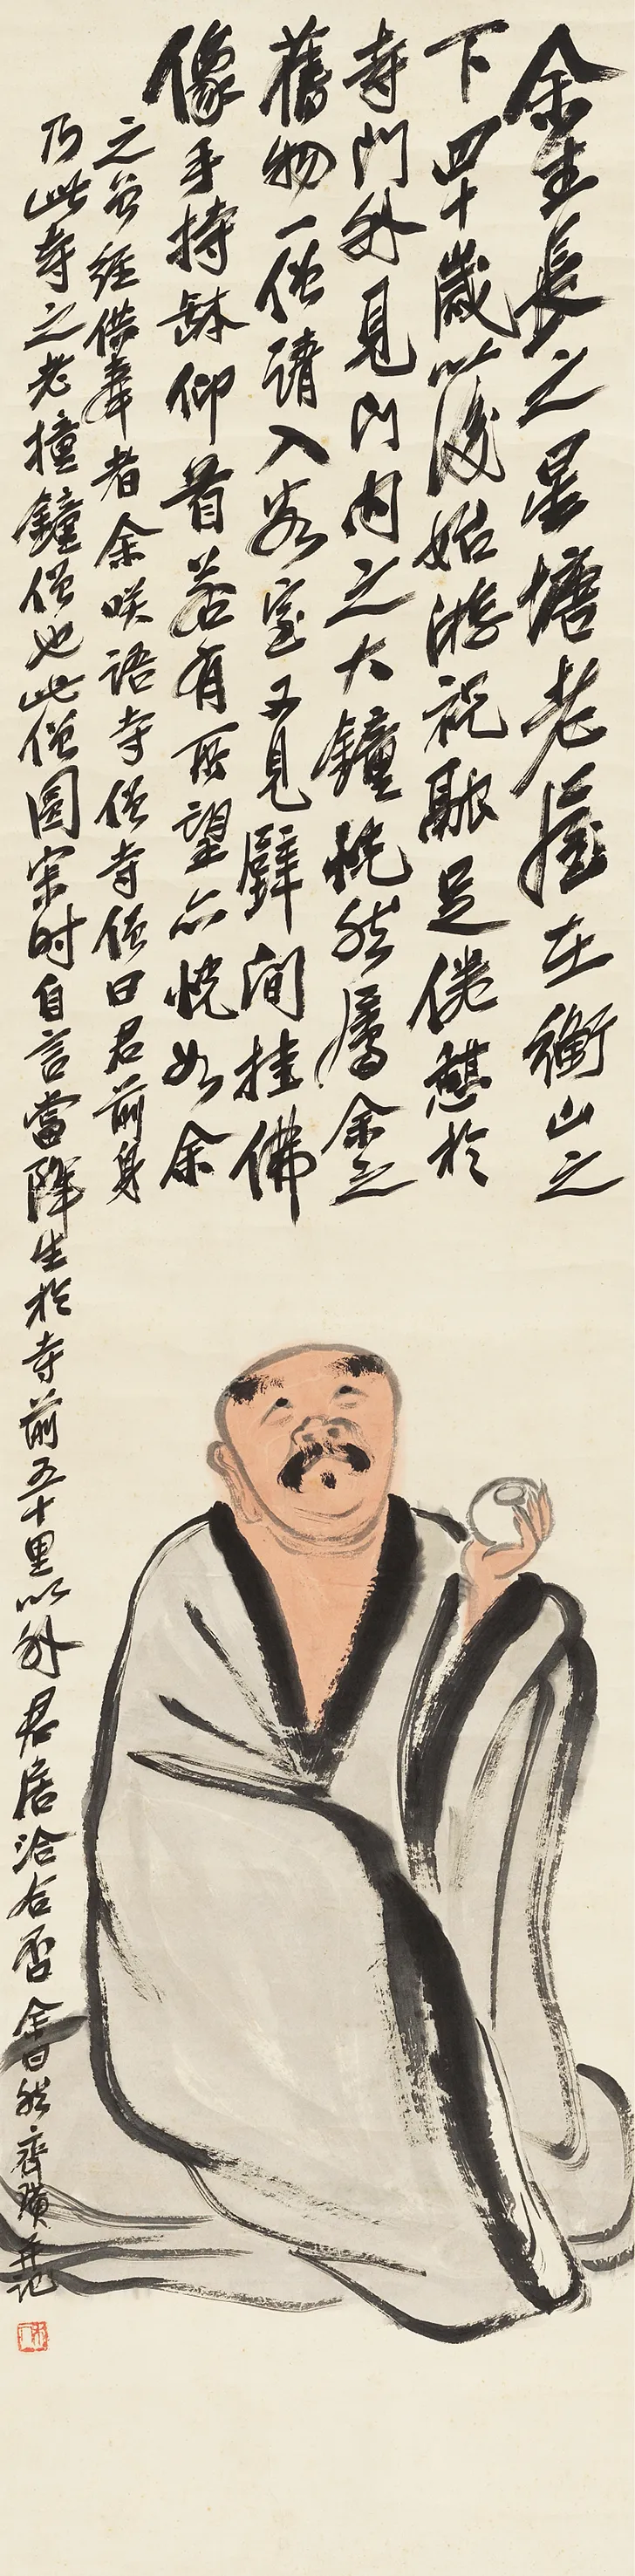 余生長之星塘老屋在衡山之
下四十歲以後始游祝融足倦憩於
寺門外見門内之大鐘恍然屬余之
舊物一僧請入客室又見壁間挂佛
像手持缽仰首若有所望亦恍如余
之曾經供奉者余咲語寺僧寺僧曰君前身
乃此寺之老撞鐘僧也此僧圓宗时自言當降生於寺前五十里以外君居洽合否余曰然齊璜并記